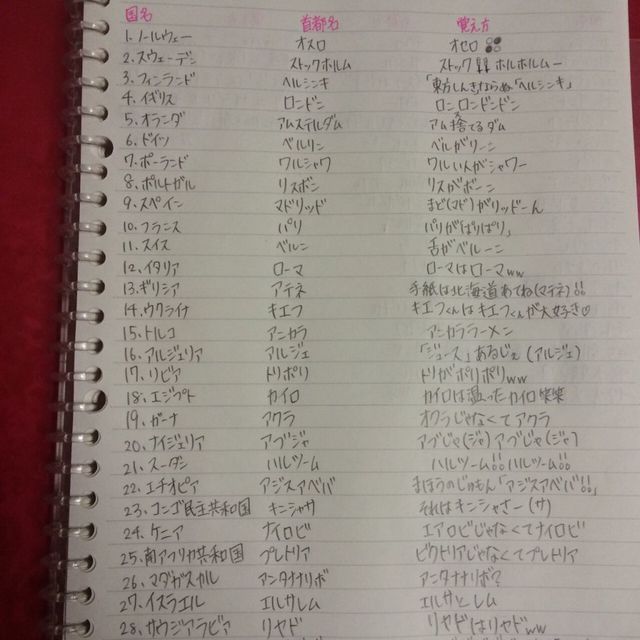 国名 首都名 覚え方
1.ノールウェー オスロ オセロ
2.スウェーデン ストックホルム ストック!!!! ホルホルムー
3.フィンランド ヘルシンキ 「東方しんきならぬ「ヘルシンキ」
4.イギリス ロンドン ロンロンドンドン
5.オランダ アムステルダム アム捨てるダム
6.ドイツ ベルリン ベルがリーン
7.ポーランド ワルシャワ ワルい人がシャワー
8.ポルトガル リスボン リスがボーン
9.スペイン マドリッド まど(マド)がリッドーん
10.フランス パリ パリがぱりぱり」
11.スイス ベルン 舌がベルーン
12.イタリア ローマ ローマはローマww
13.ギリシア アテネ 手紙は北海道あてね(アテネ)!!
14.ウクライナ キエフ キエフくんはキエフくんが大好き♡
15.トルコ アンカラ アンカララーメン
16.アルジェリア アルジェ 「ジュース」あるじぇ(アルジェ)
17.リビア トリポリ トリがポリポリww
18.エジプト カイロ カイロは温ったカイロ笑笑
19.ガーナ アクラ オクラじゃなくてアクラ
20.ナイジェリア アブジャ アブじゃ(ジャ)アブじゃ(ジャ)
21.スーダン ハルツーム ハルツーム!!ハルツーム!!
22.エチオピア アジスアベバ まほうのじゅもん「アジスアベバ!!」
23.コンゴ民主共和国 キンシャサ それはキンシャさー(サ)
24.ケニア ナイロビ エアロビじゃなくてナイロビ
25.南アフリカ共和国 プレトリア ビクトリアじゃなくてプレトリア
26.マダガスカル アンタナナリボ アンタナナリボ?
27.イスラエル エルサレム エルサとレム
28.サウジアラビア リヤド リヤドはリヤドww